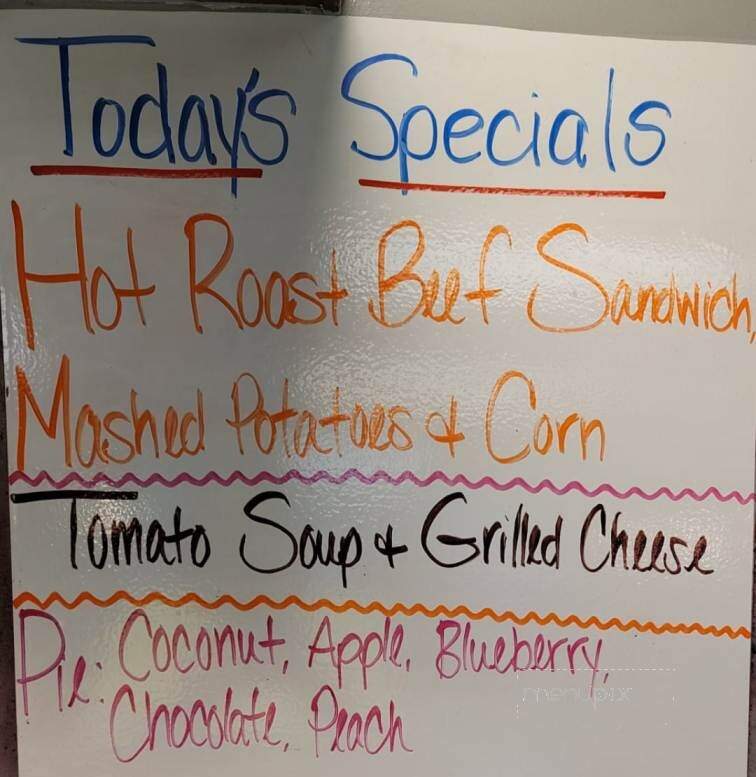 Today's Specials
Hot Roast Beef Sandwich,
Mashed Potatoes & Corn
Tomato Soup & Grilled Cheese
Pie: Coconut, Apple, Blueberry,
Chocolate, Peach
menupix